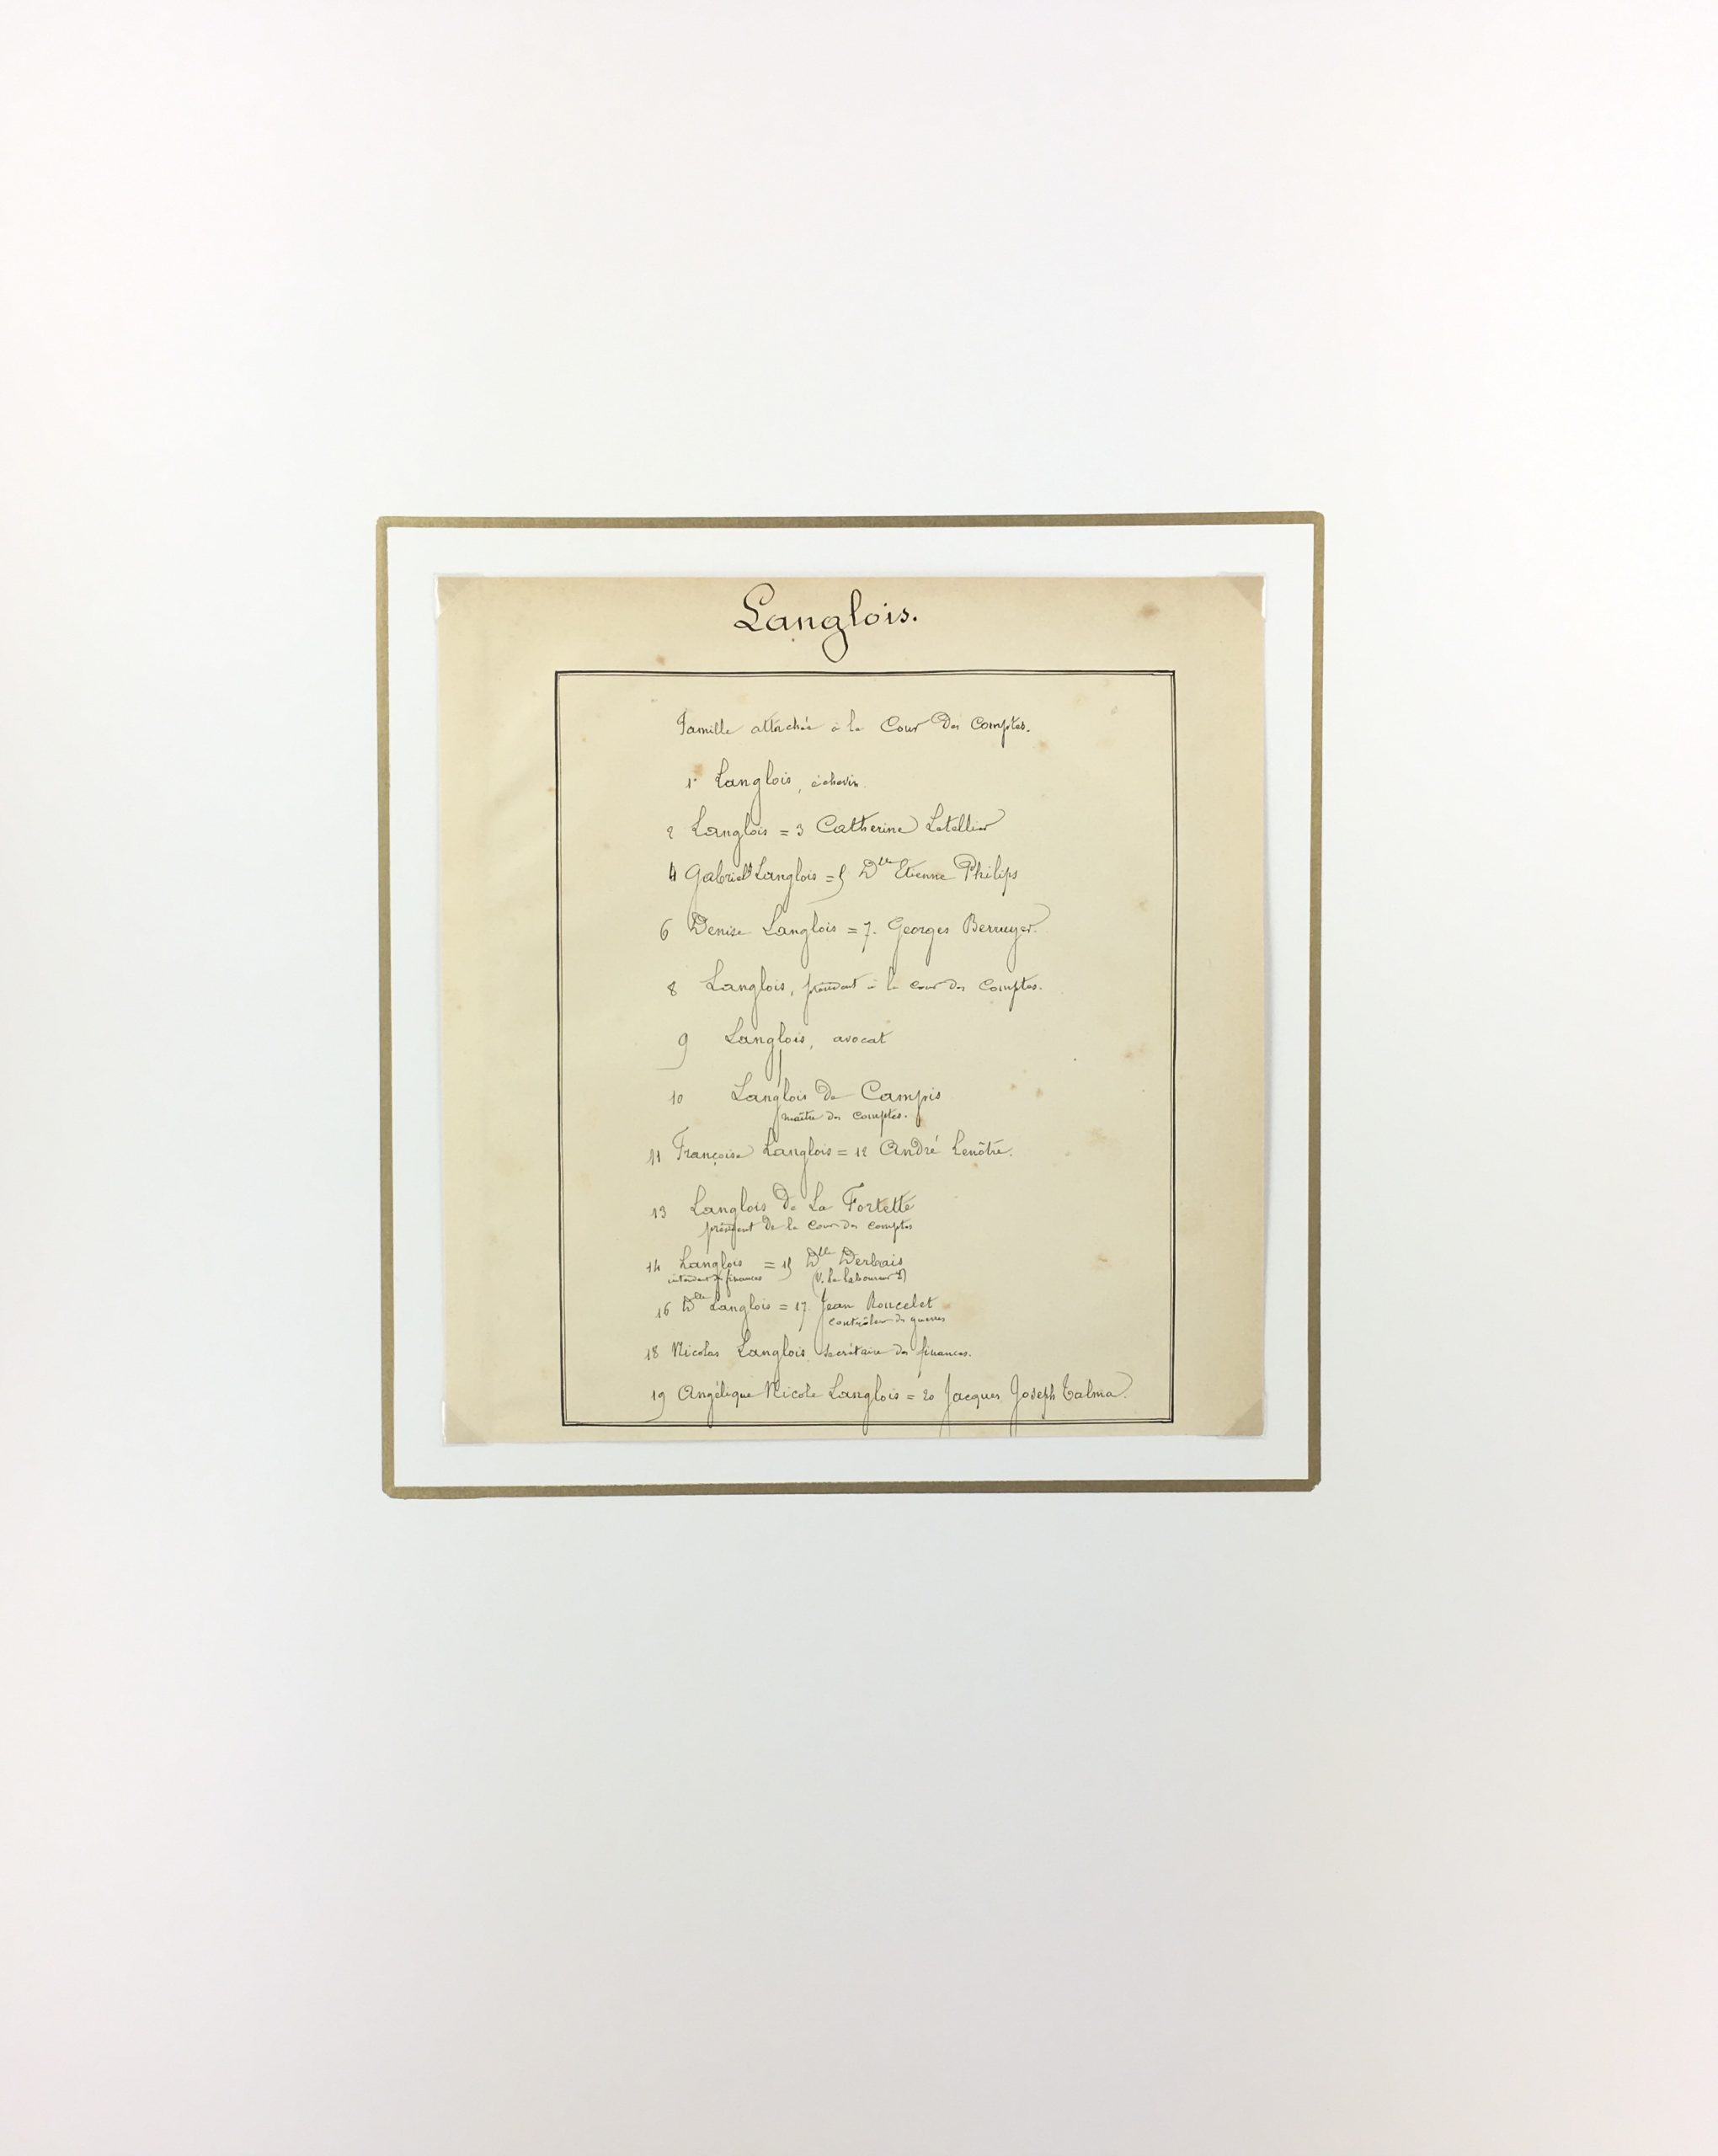 Langlois.
Famille attachée à la Cour des Comptes.
1. Langlois, échevin.
2 Langlois = 3 Catherine Letellier
4 Gabriel Langlois = 5 Dlle Etienne Philips
6 Denise Langlois = 7. Georges Berruyer.
8 Langlois, président à la cour des Comptes.
9 Langlois, avocat
10 Langlois de Campis
maître des comptes.
11 Françoise Langlois = 12 André Lenôtre.
13 Langlois de La Fortette
président de la Cour des comptes
14 Langlois = 15 Dlle Derbais
intendant des finances (V. Le Laboureur)
16 Dlle Langlois = 17. Jean Roncelet
contrôleur des guerres
18 Nicolas Langlois, secrétaire des finances.
19 Angélique Nicole Langlois = 20 Jacques Joseph Talma.